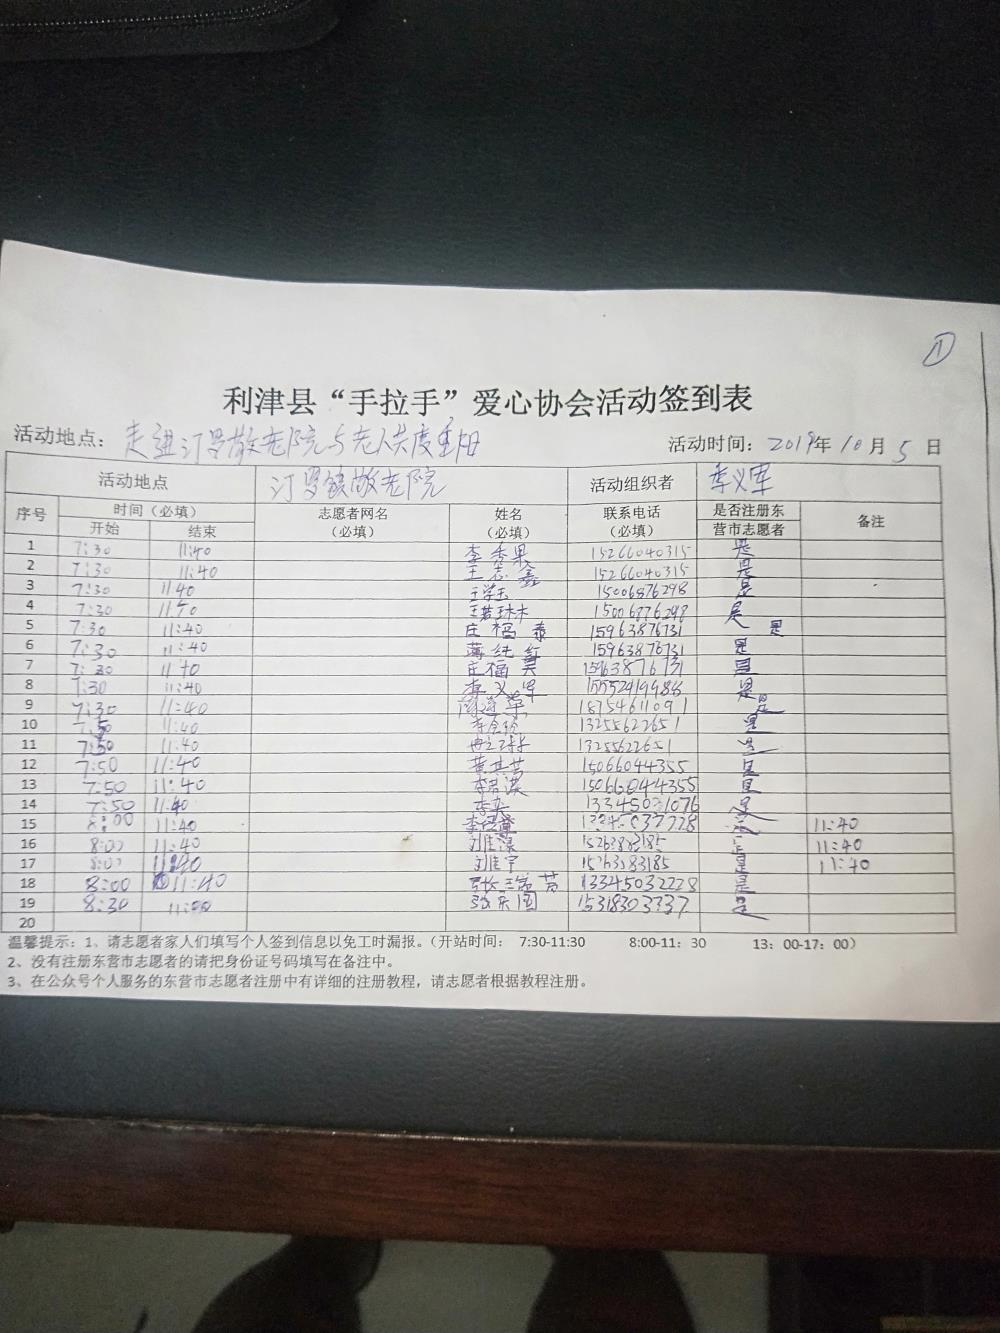 ①
利津县“手拉手”爱心协会活动签到表
活动地点： 走进汀罗敬老院与老人共度重阳 活动时间：2019年10月5日
活动地点 汀罗镇敬老院 活动组织者 李义军
序号 时间（必填） 志愿者网名（必填） 姓名（必填） 联系电话（必填） 是否注册东营市志愿者 备注
开始 结束
1 7:30 11:40 李秀果 15266040315 是
2 7:30 11:40 王志鑫 15266040315 是
3 7:30 11 40 王学玉 15006876298 是
4 7:30 王若琳 15006876298 是
5 7:30 11:40 庄福泰 15963876731 是
6 7:30 11:40 薄纯红 15963876731 是
7 7:30 11 40 庄福昊 15963876731 是
8 7:30 11:40 李义军 是
9 7:30 11:40 18754611091 是
10 7:50 11:40 李会玲 13255622651 是
11 7:50 11:40 13255622651 是
12 7:50 11:40 黄其芳 15066044355 是
13 7:50 11:40 15066044355 是
14 7:50 11:40 李英 是
15 8:00 11:40 11:40
16 8:00 11:40 11:40
17 8:00 11:40 刘佳宇 11:40
18 8:00 11:40 13345032228 是
19 8:30 张东国 15318303737 是
20
温馨提示：1、请志愿者家人们填写个人签到信息以免工时漏报。（开站时间： 7:30-11:30 8:00-11：30 13：00-17：00）
2、没有注册东营市志愿者的请把身份证号码填写在备注中。
3、在公众号个人服务的东营市志愿者注册中有详细的注册教程，请志愿者根据教程注册。